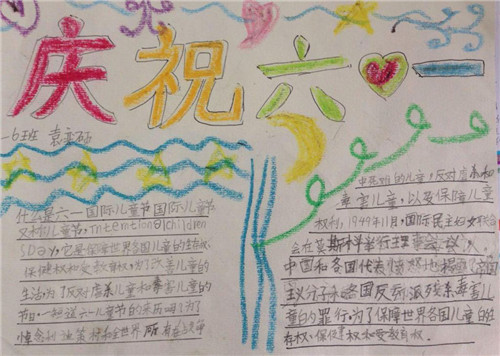 庆祝六一
一6班 袁
什么是六一国际儿童节国际儿童节
又称儿童节,International children
sDay,它是保障世界各国儿童的生存权、
保健权和受教育权,为了改善儿童的
生活,为了反对虐杀儿童和毒害儿童的
节日,
六一儿童节的来历 为了
悼念 全世界所有在战争
中死难的儿童,反对虐杀和
毒害儿童,以及保障儿童
权利,1949年11月,国际民主妇女联合
会在莫斯科举行理事会议,
中国和各国代表愤怒地揭露了帝国
主义分子和各国反动派残杀毒害儿
童的罪行。为了保障世界各国儿童的生
存权、保健权和受教育权。